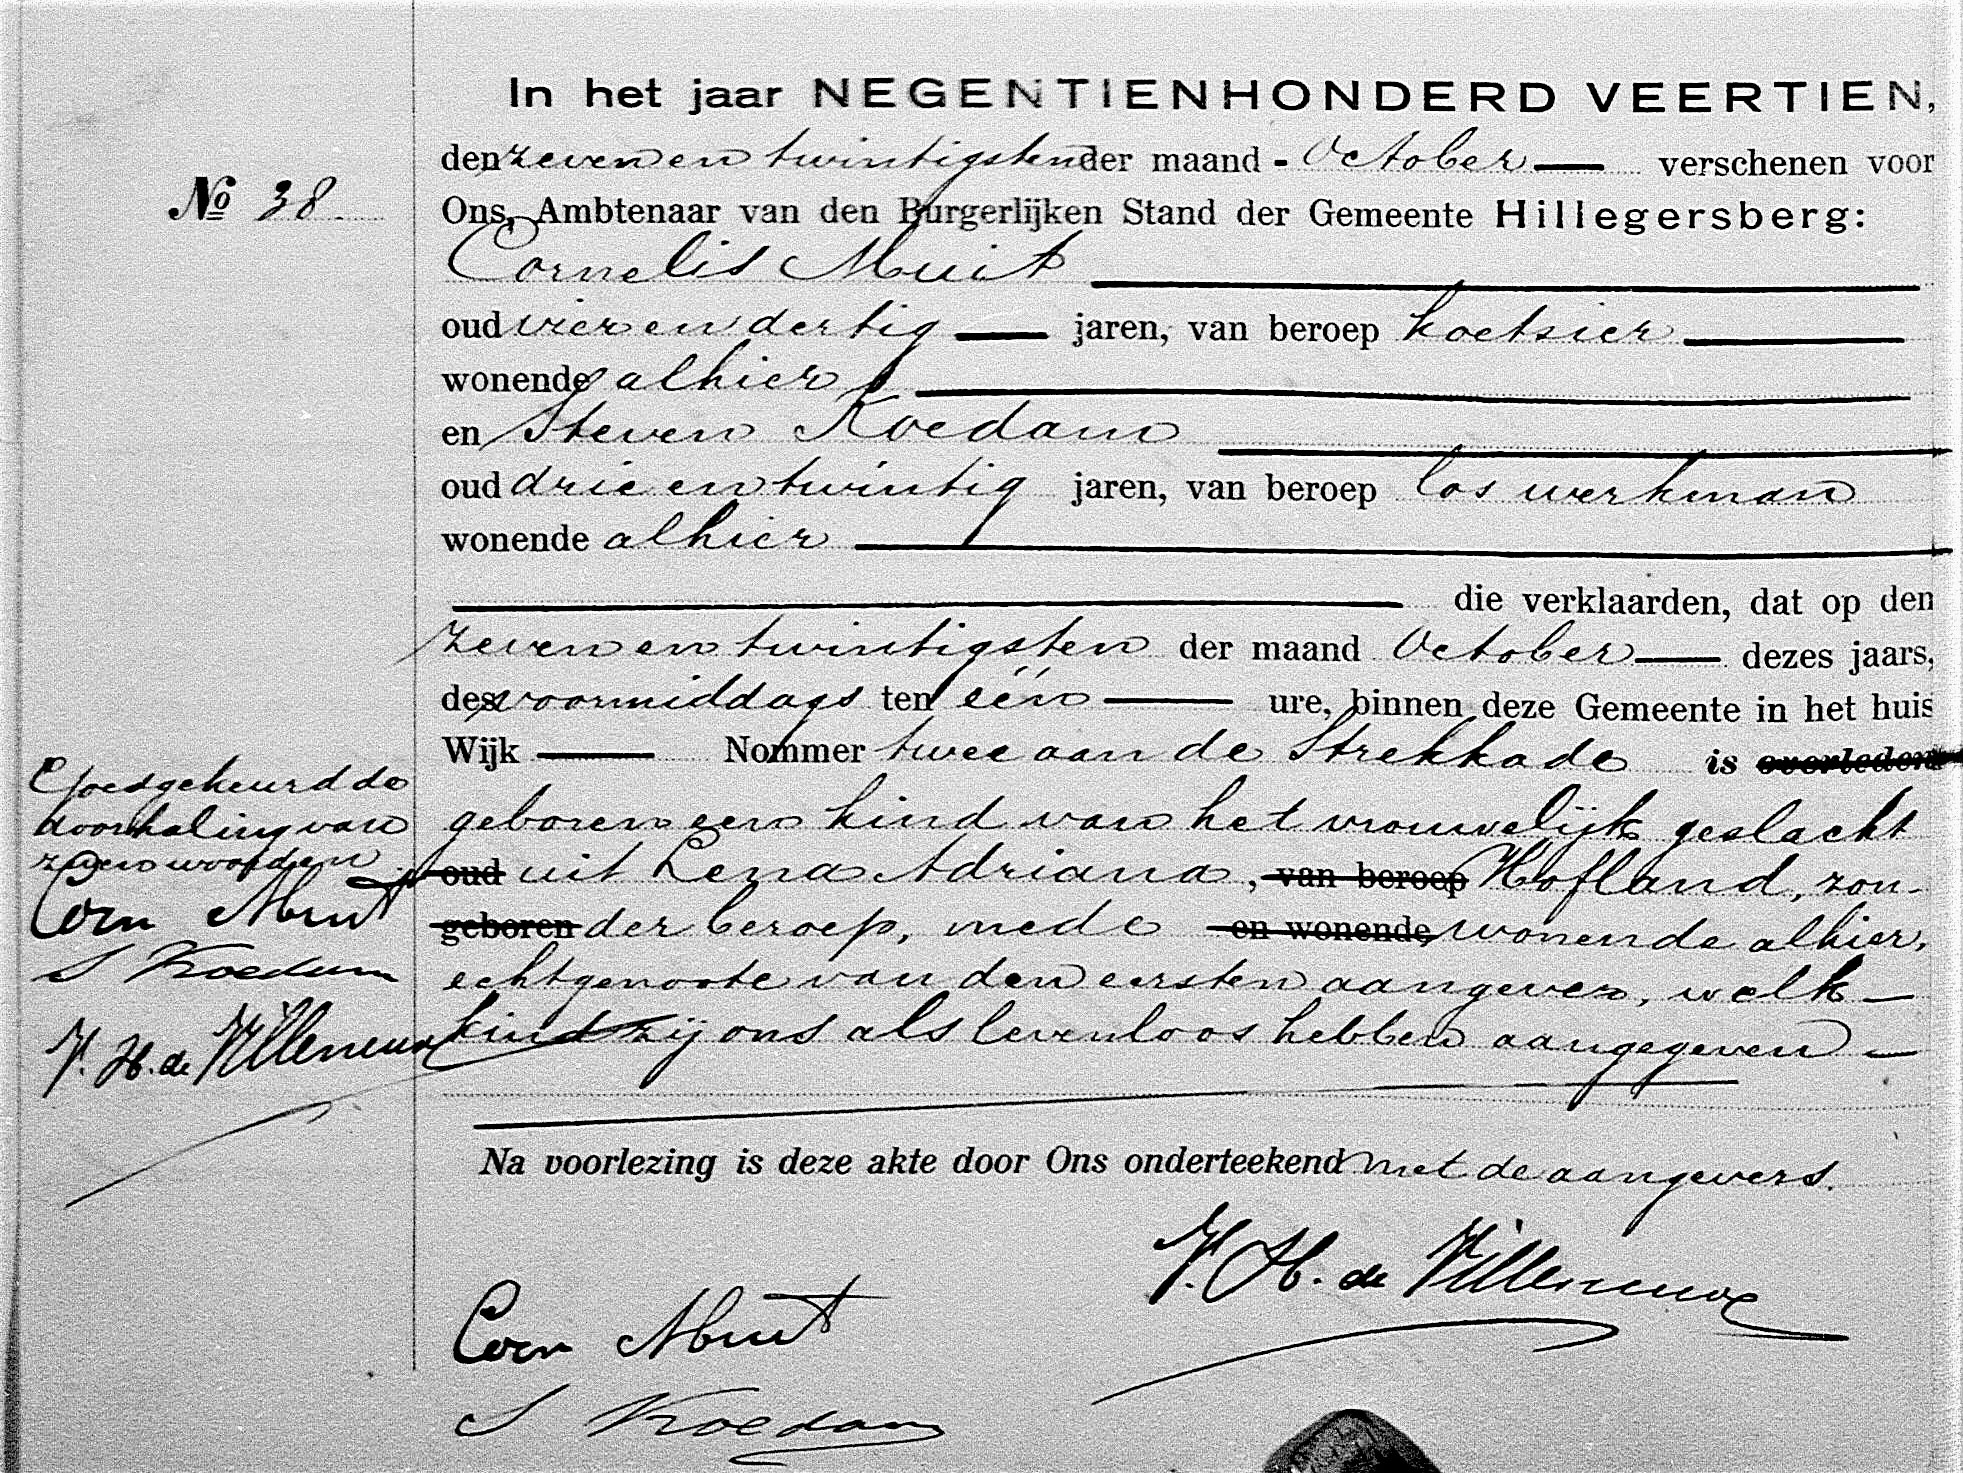 In het jaar NEGENTIENHONDERD VEERTIEN,
den zeven en twintigsten der maand - October — verschenen voor
No 38.
Ons, Ambtenaar van den Burgerlijken Stand der Gemeente Hillegersberg:
Cornelis Muit
oud vier en dertig — jaren, van beroep koetsier
wonende alhier
en Steven Koedam
oud drie en twintig jaren, van beroep los werkman
wonende alhier
die verklaarden, dat op den
zeven en twintigsten der maand October — dezes jaars,
des voormiddags ten één — ure, binnen deze Gemeente in het huis
Wijk — Nommer twee aan de Strekkade is overleden
geboren een kind van het vrouwelijk geslacht
oud uit Lena Adriana, van beroep Hofland, zon-
geboren der beroep, mede en wonende wonende alhier,
echtgenoote van den eersten aangever, welk —
kind zij ons als levenloos hebben aangegeven —
Goedgekeurd de
doorhaling van
zeven woorden.
Corn Muit
S Koedam
V. H. de Villeneuve
Na voorlezing is deze akte door Ons onderteekend met de aangevers.
V. H. de Villeneuve
Corn Muit
S Koedam